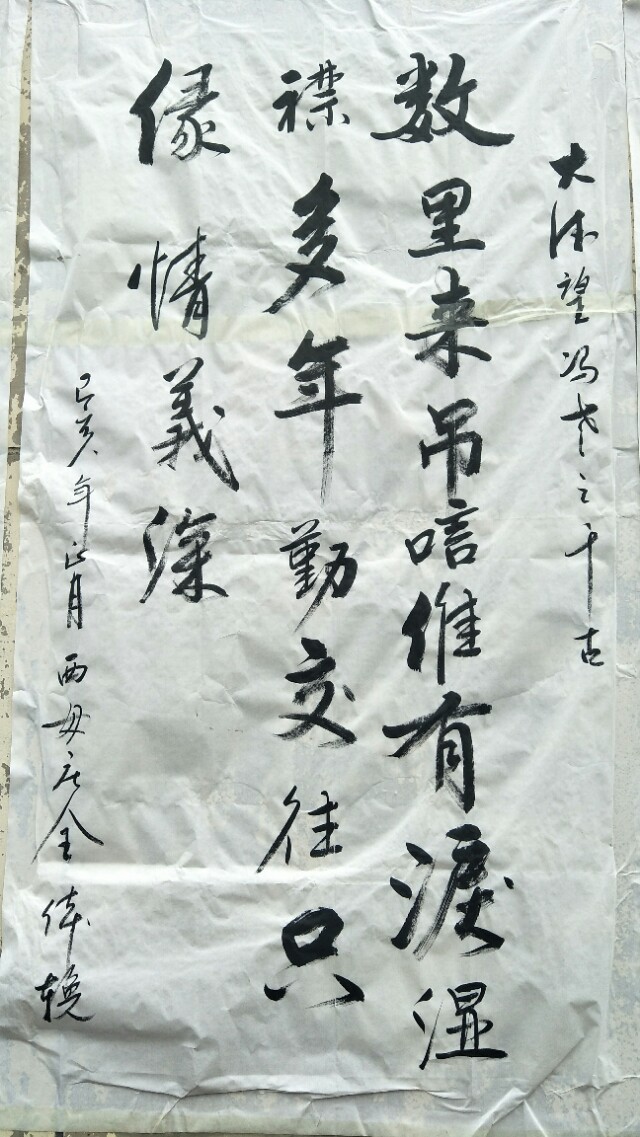 大德望冯老之千古
数里来吊唁惟有淚湿
襟多年勤交往只
缘情義深
己亥年正月西母庄全体挽